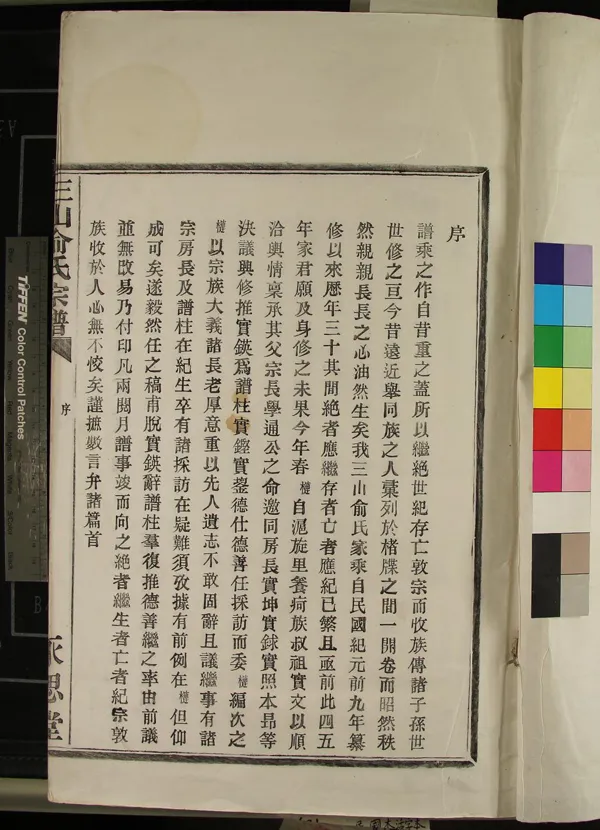 序
譜乘之作自昔重之蓋所以繼絕世紀存亡敦宗而收族傳諸子孫世
世修之亘今昔遠近舉同族之人彙列於楮牒之間一開卷而昭然秩
然親親長長之心油然生矣我三山俞氏家乘自民國紀元前九年纂
修以來歷年三十其間絕者應繼存者亡者應紀已繁且亟前此四五
年家君願及身修之未果今年春 自滬旋里養疴族叔祖實文以順
洽輿情稟承其父宗長學通公之命邀同房長實坤實銶實照本昂等
決議興修推實鍈爲譜柱實鏗實鋆德仕德善任採訪而委 編次之
以宗族大義諸長老厚意重以先人遺志不敢固辭且議繼事有諸
宗房長及譜柱在紀生卒有諸採訪在疑難須攷據有前例在 但仰
成可矣遂毅然任之稿甫脫實鍈辭譜柱羣復推德善繼之率由前議
重無改易乃付印凡兩閱月譜事竣而向之絕者繼生者亡者紀宗敦
族收於人心無不恔矣謹摭數言弁諸篇首
三山俞氏宗譜
序
永思堂
TIFFEN Color Control Patches